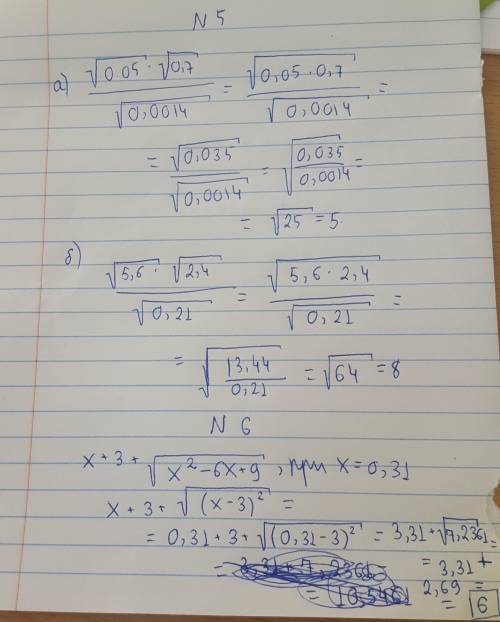 N 5
а) √0.05 · √0,7 / √0,0014 = √0,05 · 0,7 / √0,0014 =
= √0,035 / √0,0014 = √(0,035 / 0,0014) =
= √25 = 5.
б) √5,6 · √2,4 / √0,21 = √5,6 · 2,4 / √0,21 =
= √(13,44 / 0,21) = √64 = 8
N 6
x + 3 + √x² - 6x + 9, при x = 0,31
x + 3 + √(x - 3)² =
= 0,31 + 3 + √(0,31 - 3)² = 3,31 + √7,2361 =
= 3,31 +
2,69 =
= 6